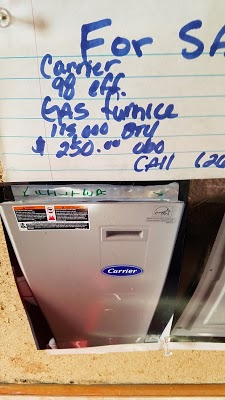 For SA
Carrier
98 eff.
GAS furnice
115,000 BTU
$250.00 obo
CAll (20
Carrier